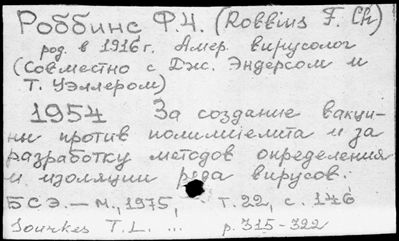 Роббинс Ф.Ч. (Robbins F. Ch)
род. в 1916 г. Амер. вирусолог
(Совместно с Дж. Эндерсом и
Т. Уэллером)
1954 За создание вакци-
ны против полимиелита и за
разработку методов определения
и изоляции ряда вирусов.
БСЭ. — М., 1975, т. 22, с. 146
Sourkes T.L. ... p. 315-322